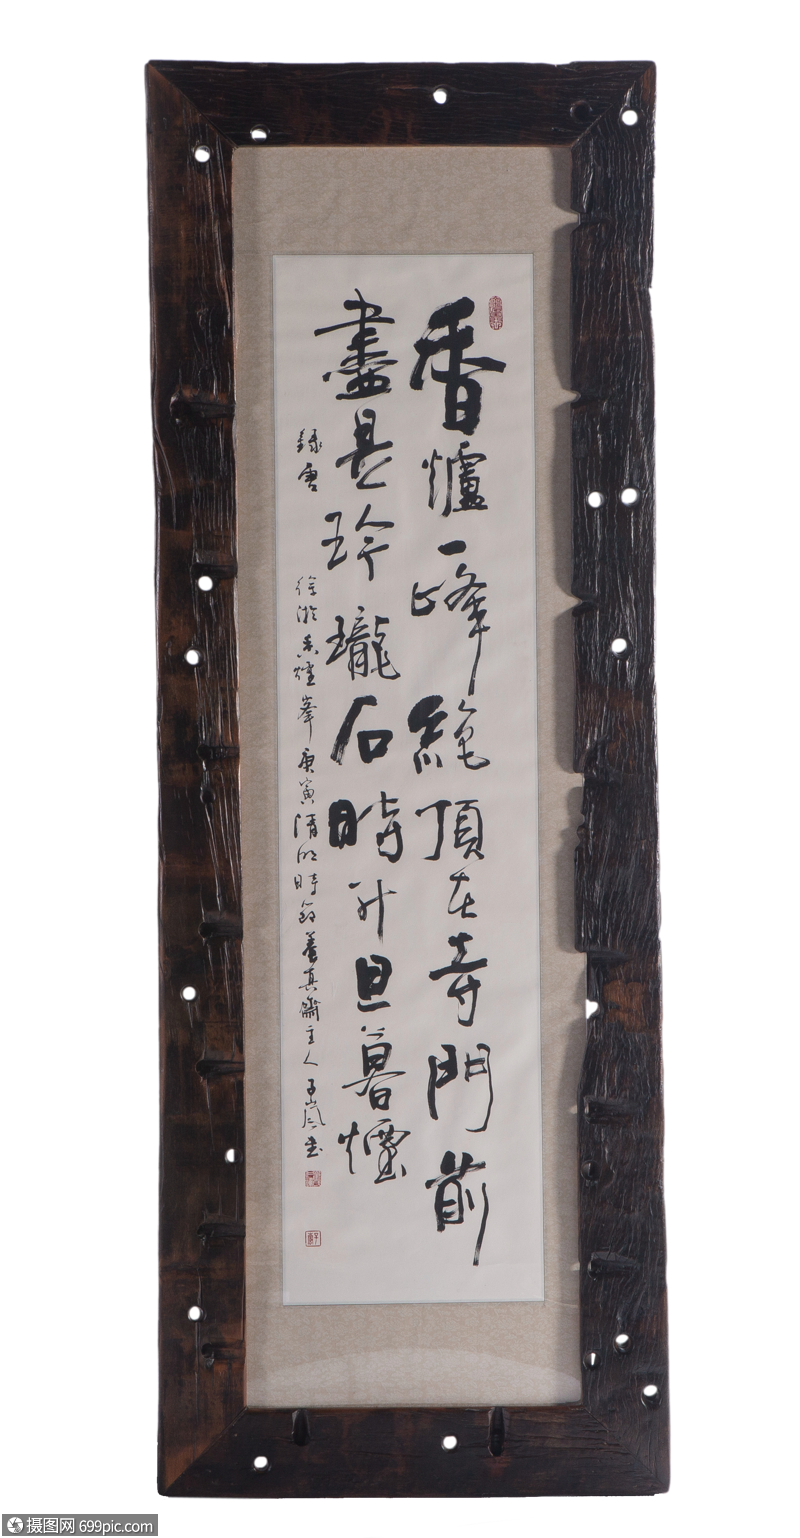 香爐一峰絕頂在寺門前
盡是玲瓏石時升旦暮煙
錄唐徐凝香爐峯庚寅清明時節養真齋主人子嵐書
摄图网 699pic.com